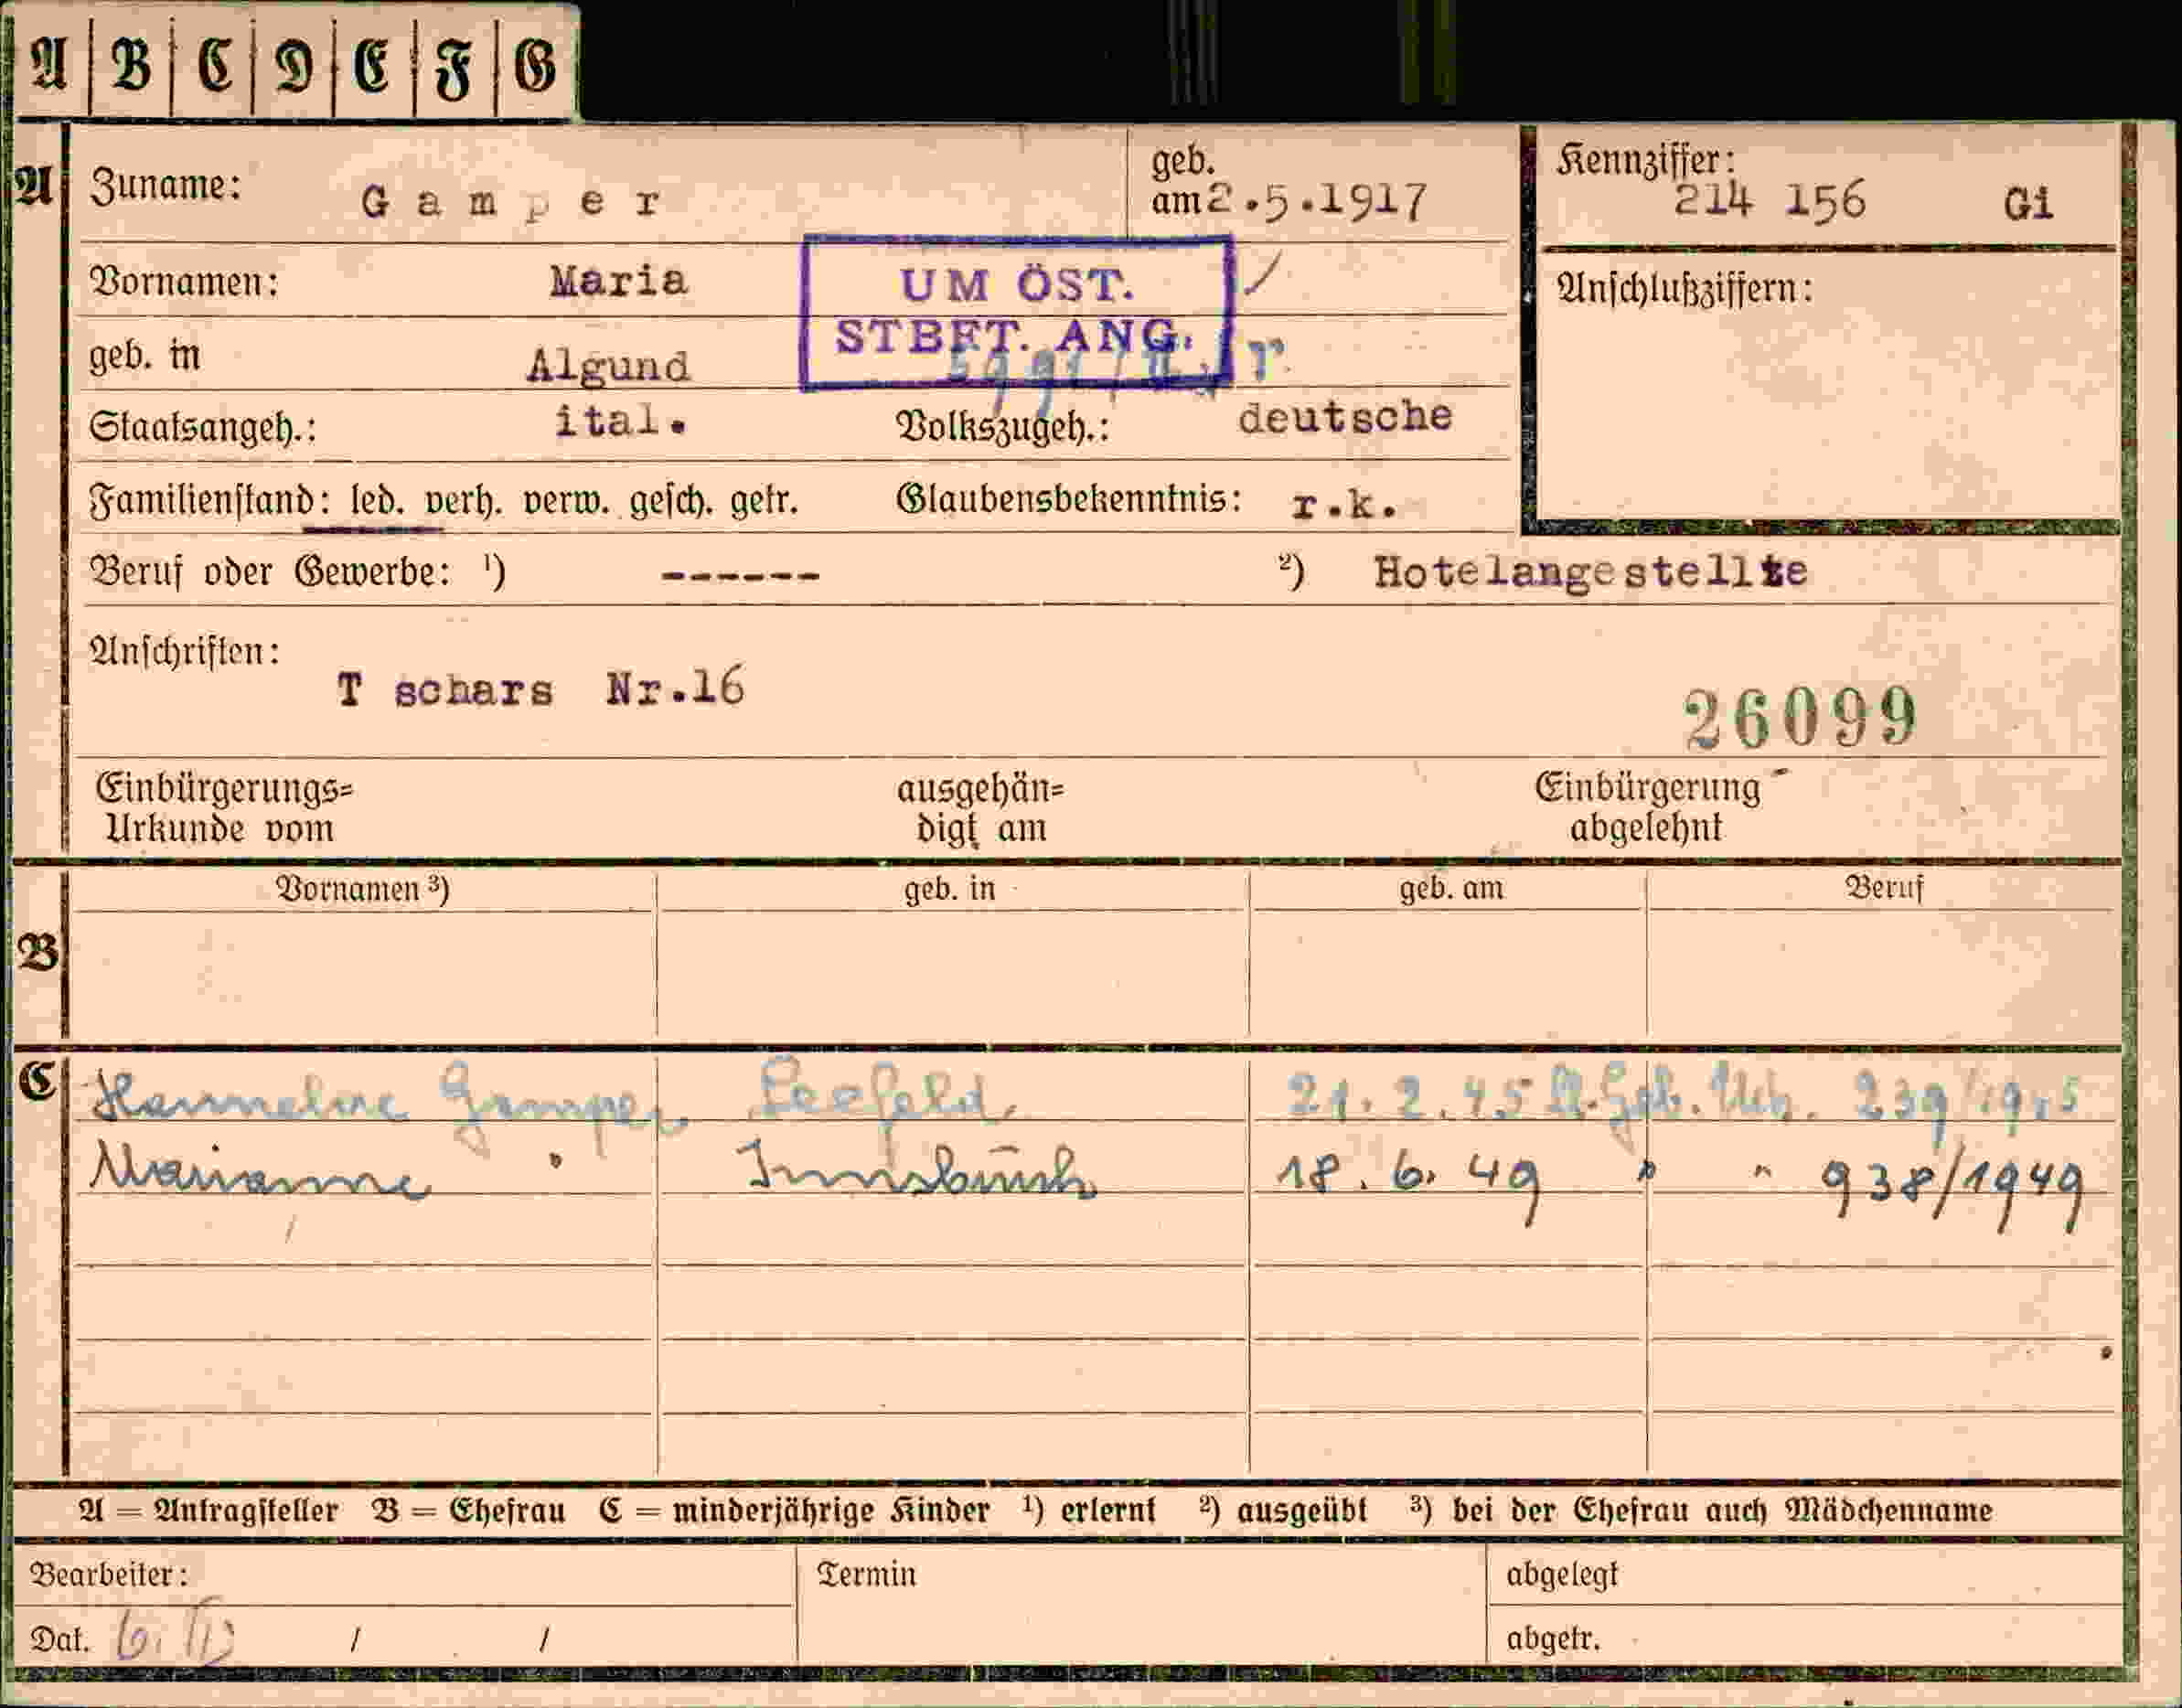 A B C D E F G
A Zuname: Gamper geb. am 2.5.1917 Kennziffer: 214 156 Gi
Vornamen: Maria UM ÖST. Anschlußziffern:
geb. in Algund STBFT. ANG.
Staatsangeh.: ital. Volkszugeh.: deutsche
Familienstand: led. verh. verw. gesch. getr. Glaubensbekenntnis: r.k.
Beruf oder Gewerbe: ¹) ------ ²) Hotelangestellte
Anschriften:
T schars Nr.16
26099
Einbürgerungs= ausgehän= Einbürgerung
Urkunde vom digt am abgelehnt
B Vornamen ³) geb. in geb. am Beruf
C Hannelore Gamper Seefeld 21.2.45 Geb. 239/1945
Marianne " Innsbruck 18.6.49 " " 938/1949
A = Antragsteller B = Ehefrau C = minderjährige Kinder ¹) erlernt ²) ausgeübt ³) bei der Ehefrau auch Mädchenname
Bearbeiter: Termin abgelegt
Dat. / / abgetr.